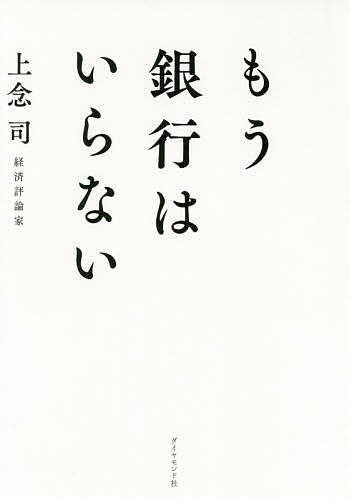 もう
銀行は
いらない
上念司
経済評論家
ダイヤモンド社